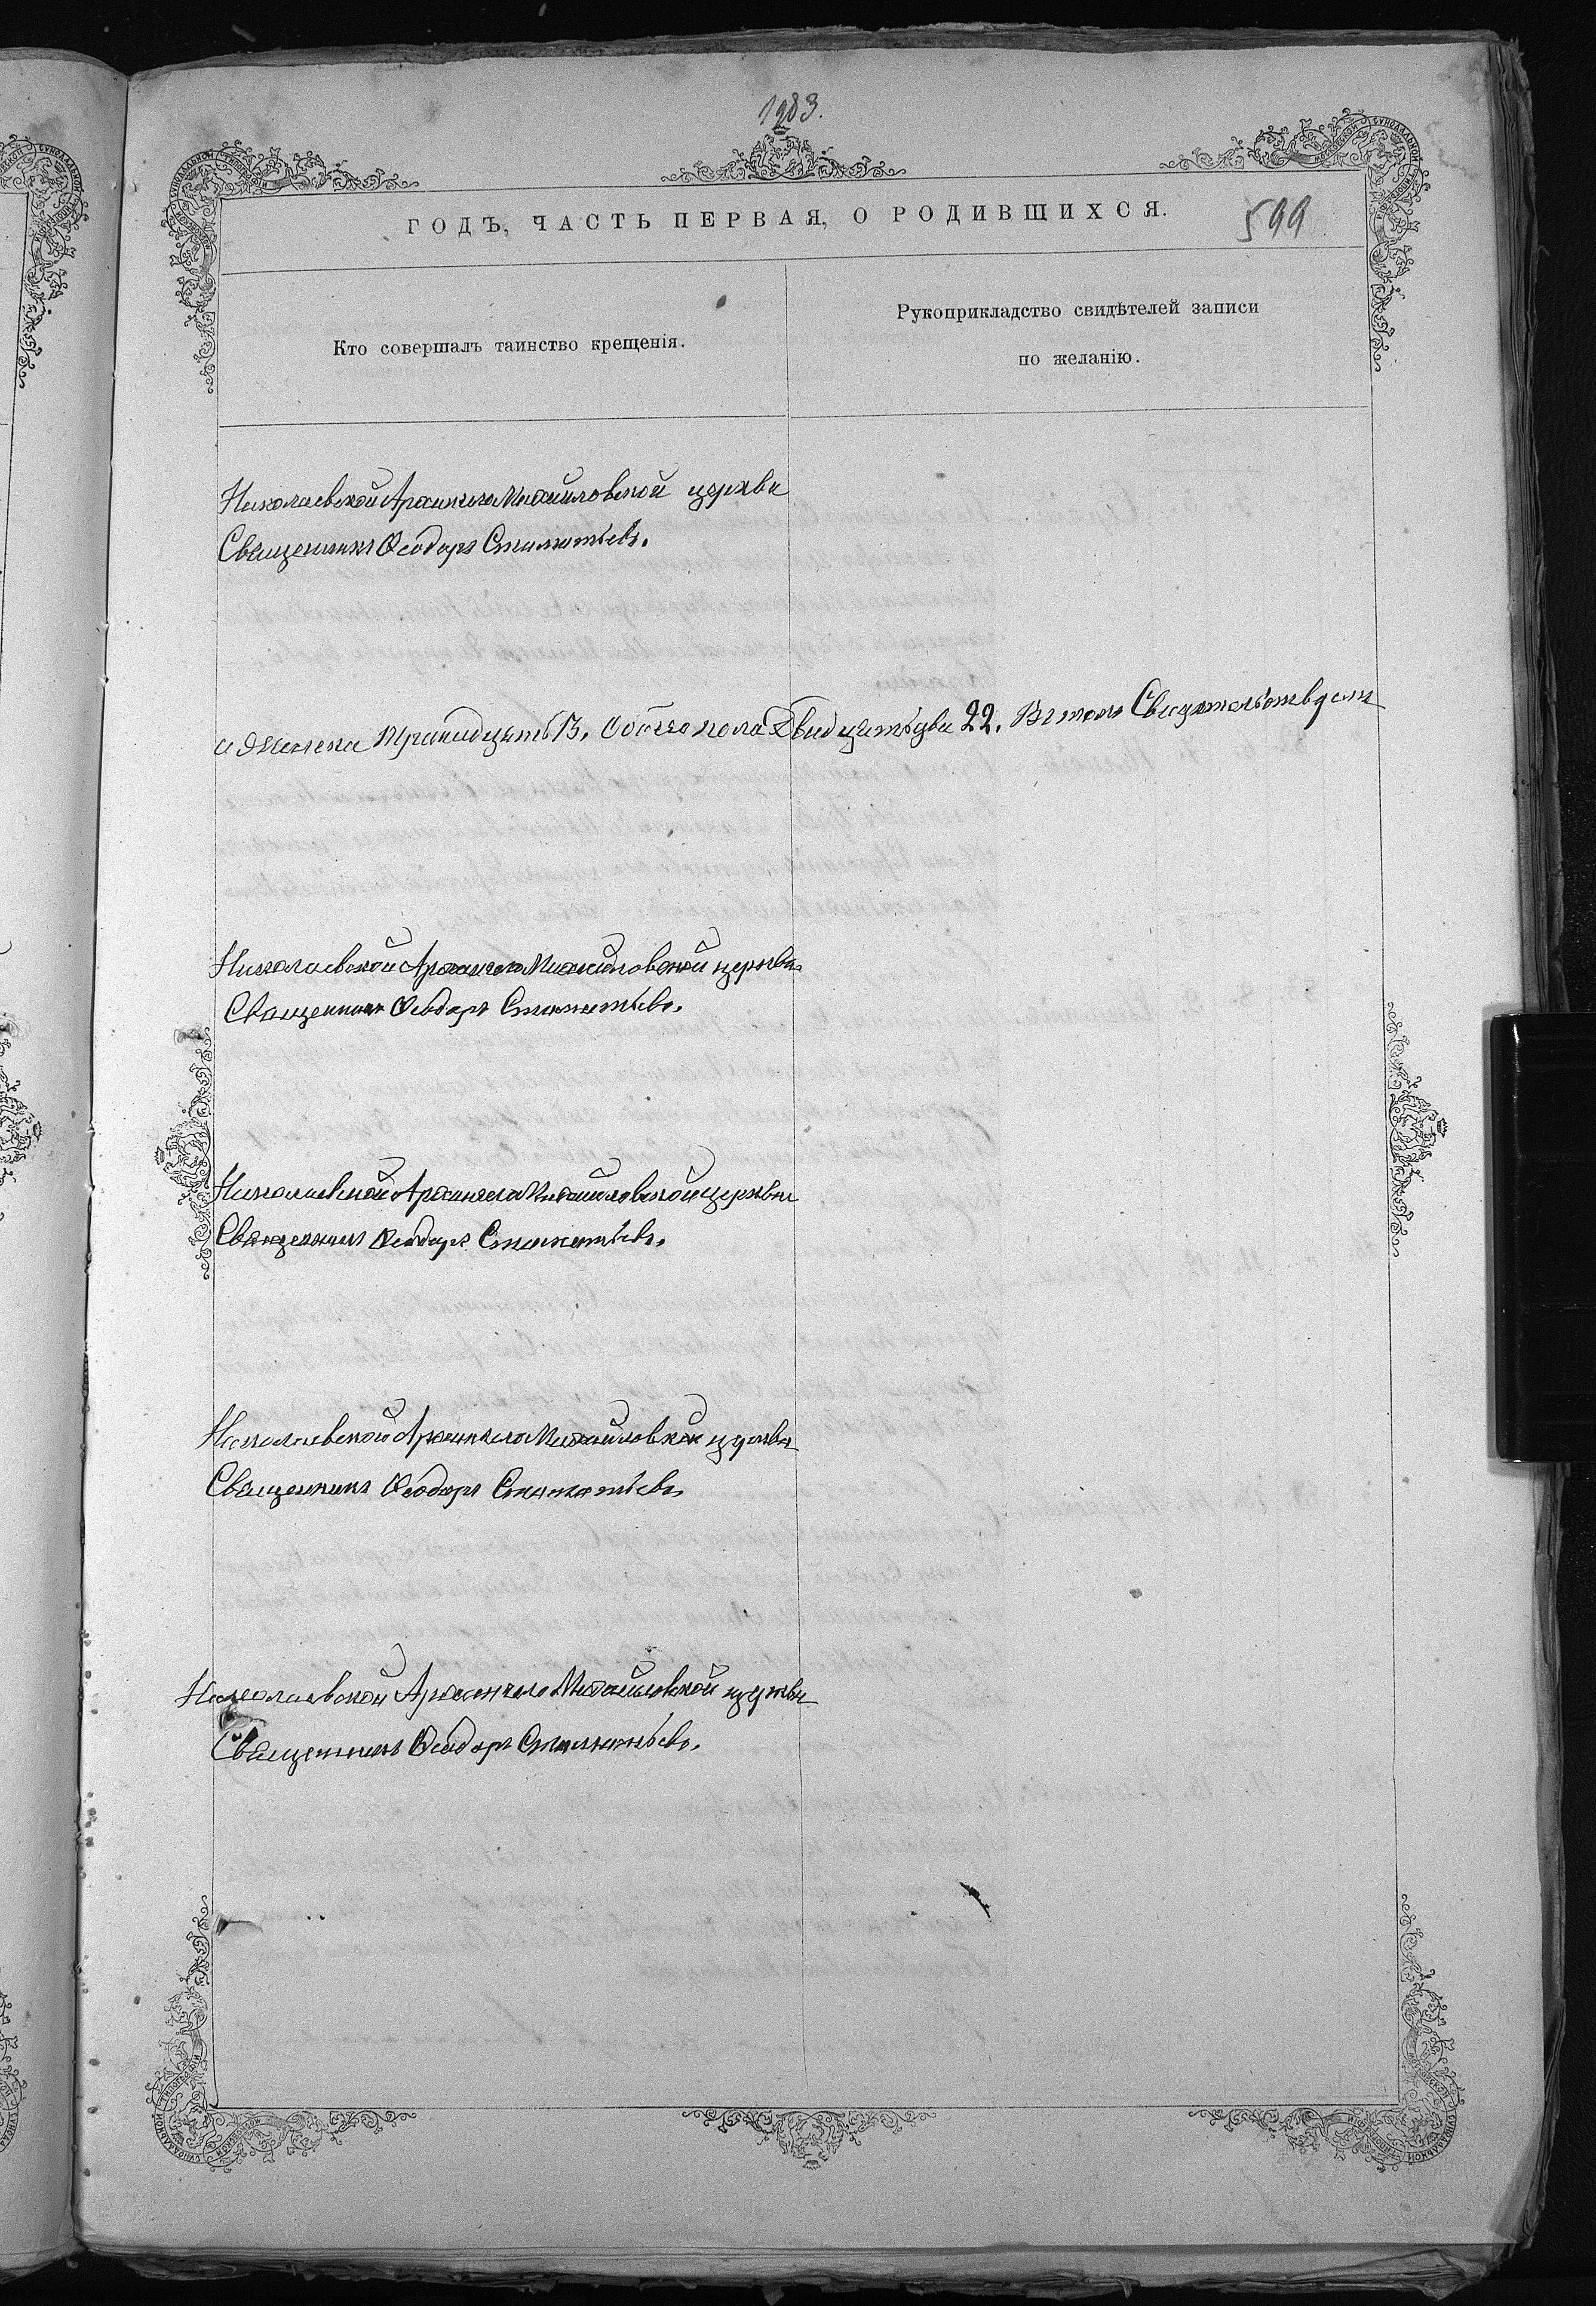 1283.
ГОДЪ, ЧАСТЬ ПЕРВАЯ, О РОДИВШИХСЯ.
599
Кто совершалъ таинство крещенія.
Рукоприкладство свидѣтелей записи
по желанію.
Николаевской Архангело Михайловской церкви
Священникъ Ѳеодоръ Стаматьевъ.
и Женска тринадцать 13, Обоего пола Двадцать два 22. Въ томъ Свидѣтельствуемъ
Николаевской Архангело Михайловской церкви
Священникъ Ѳеодоръ Стаматьевъ.
Николаевской Архангело Михайловской церкви
Священникъ Ѳеодоръ Стаматьевъ.
Николаевской Архангело Михайловской церкви
Священникъ Ѳеодоръ Стаматьевъ
Николаевской Архангело Михайловской церкви
Священникъ Ѳеодоръ Стаматьевъ.